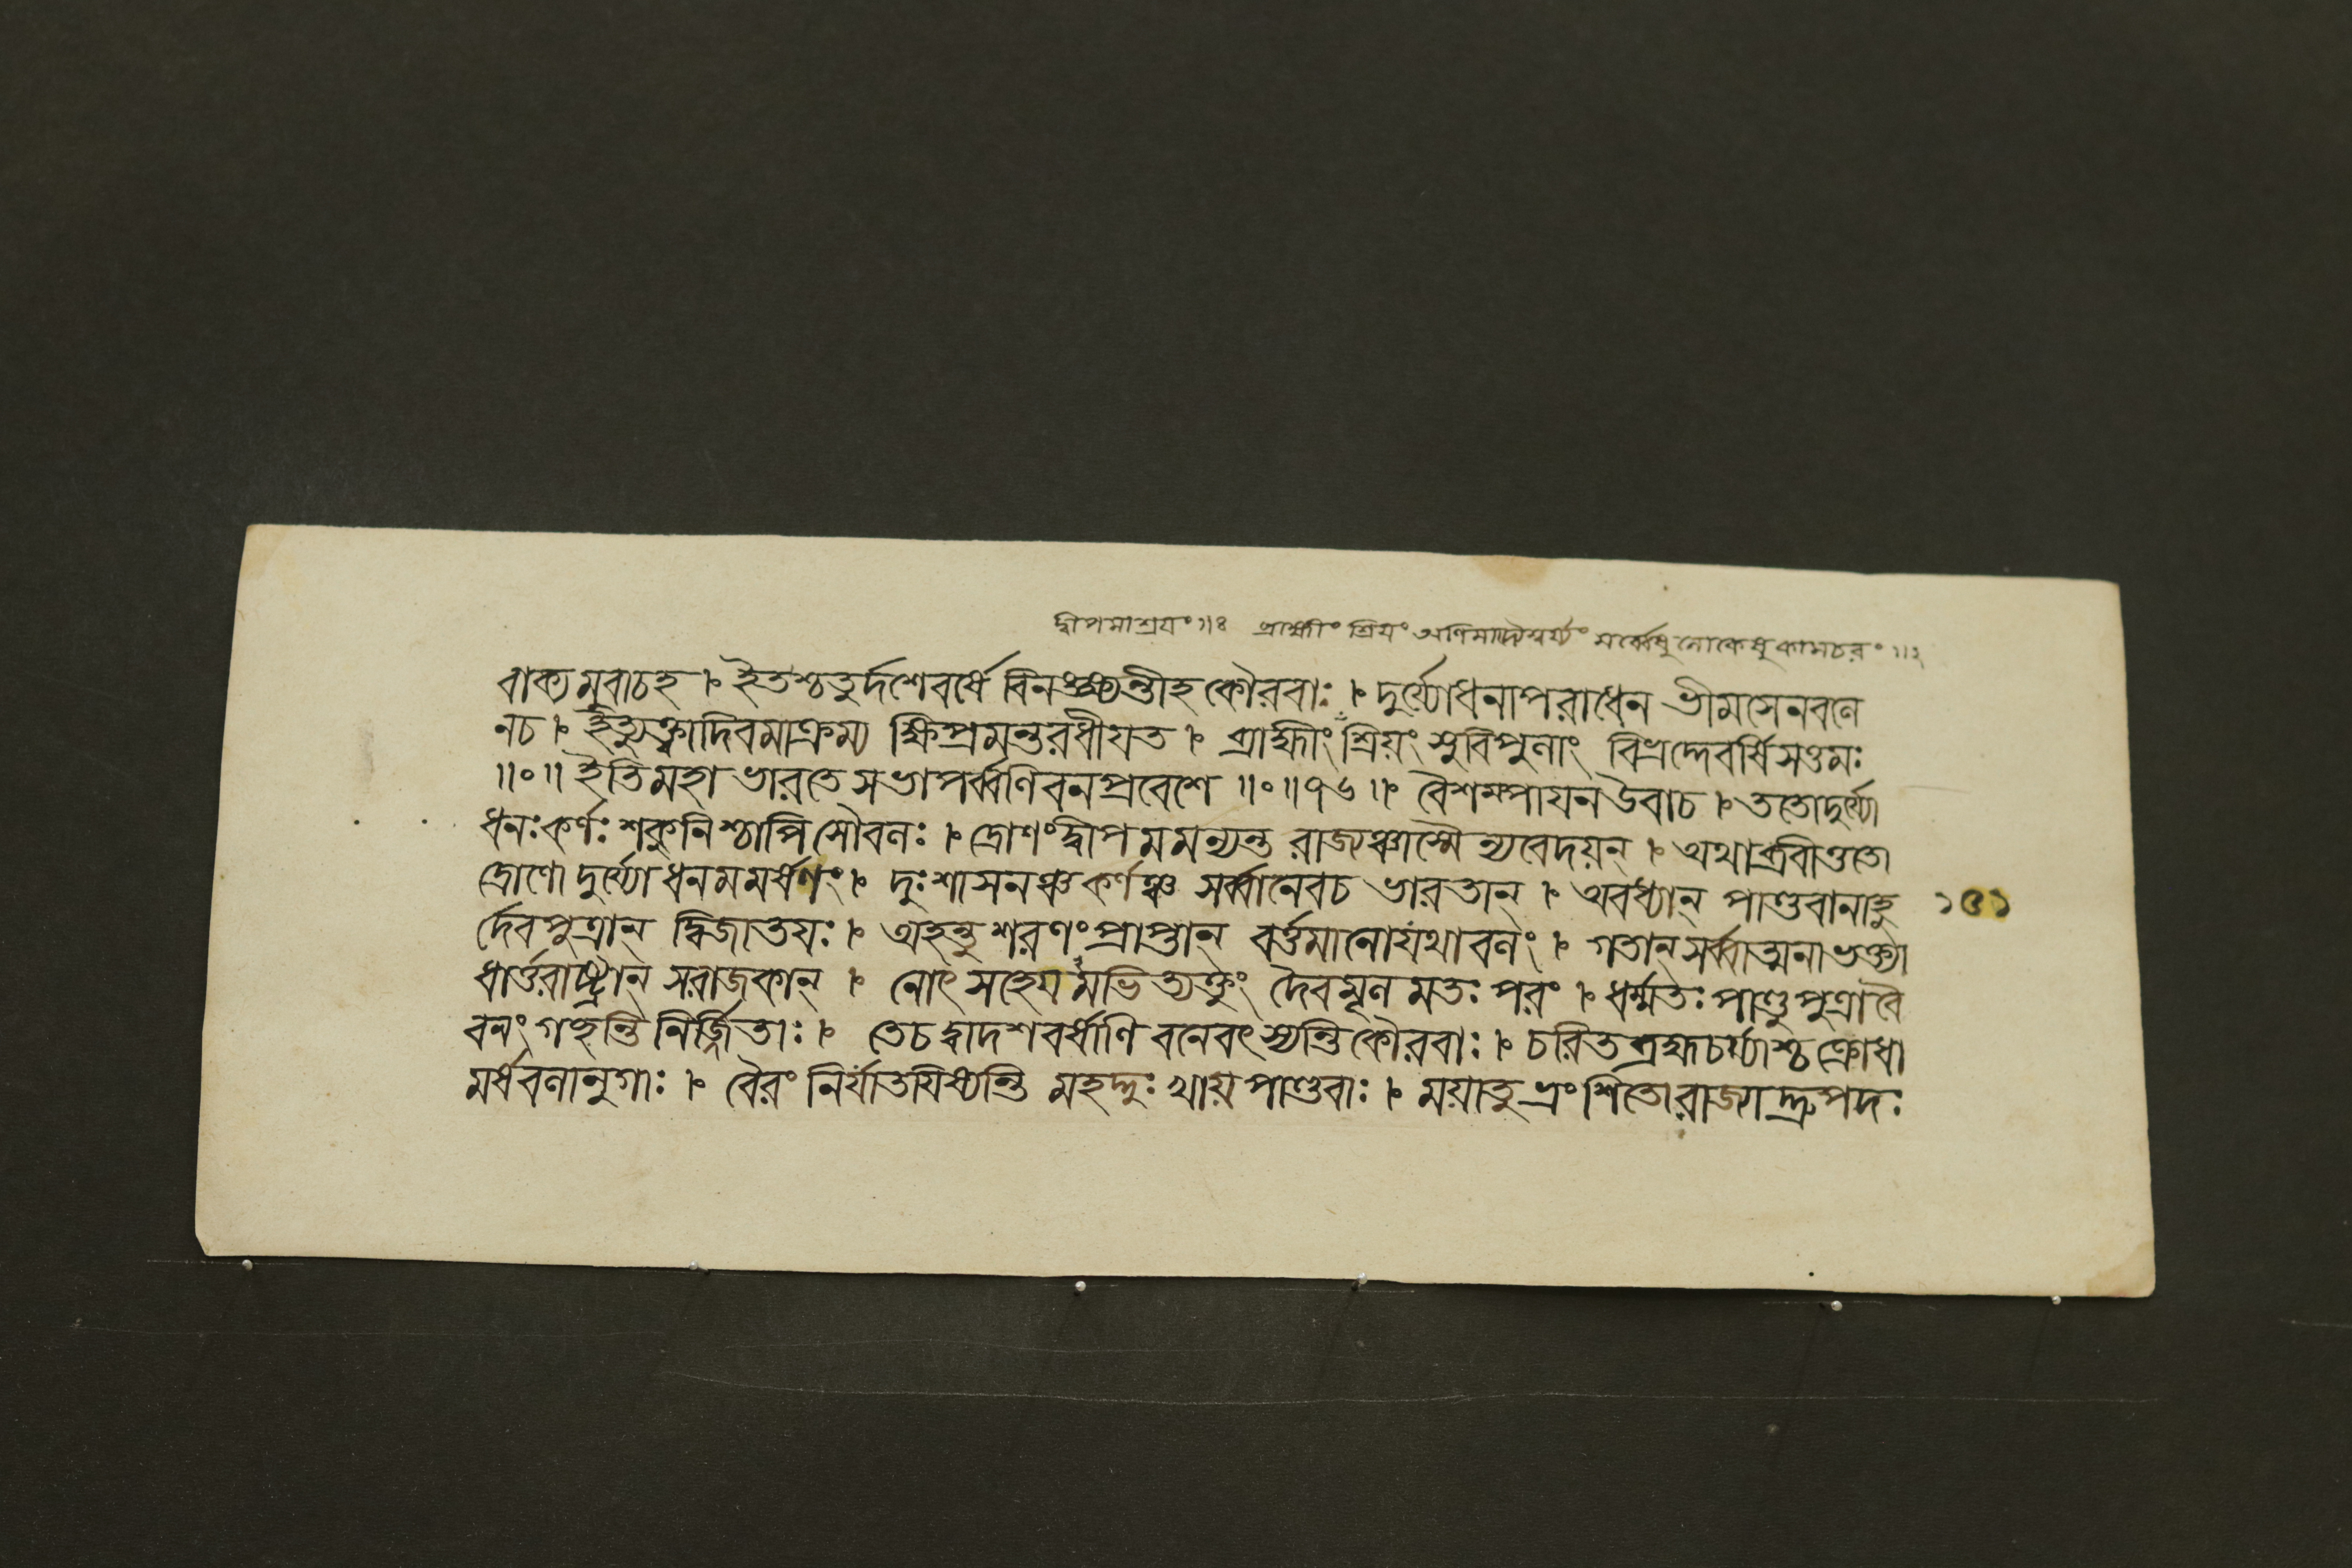 দ্বীপমাশ্রযং ॥৪ ব্রাহ্মীং শ্রিযং অণিমাদ্যৈশ্বর্য্যং সর্ব্বেষু লোকেষু কামচরং ॥২
বাক্যমুবাচহ । ইতশ্চতুর্দশেবর্ষে বিনঙ্ক্ষ্যন্তীহ কৌরবাঃ । দুর্য্যোধনাপরাধেন ভীমসেনবলে
নচ । ইত্যুক্ত্বাদিবমাক্রম্য ক্ষিপ্রমন্তরধীযত । ব্রাহ্মীং শ্রিয়ং সুবিপুলাং বিভ্রদ্দেবর্ষিসত্তমঃ
॥০॥ ইতিমহাভারতে সভাপর্ব্বণিবনপ্রবেশে ॥০॥৭৬॥ বৈশম্পাযনউবাচ । ততোদুর্য্যো
ধনঃকর্ণঃ শকুনিশ্চাপিসৌবলঃ । দ্রোণং দ্বীপমমন্যন্ত রাজ্যঞ্চাস্মৈ ন্যবেদয়ন্ । অথাব্রবীত্ততো
দ্রোণো দুর্য্যোধনমমর্ষণং । দুঃশাসনঞ্চকর্ণঞ্চ সর্ব্বানেবচ ভারতান্ । অবধ্যান্ পাণ্ডবানাহু
১৫১
র্দেবপুত্রান্ দ্বিজাতযঃ । অহন্তু শরণং প্রাপ্তান্ বর্ত্তমানোযথাবলং । গতান্ সর্ব্বাত্মনাভক্ত্যা
ধার্ত্তরাষ্ট্রান্ সরাজকান্ । নোৎসহেযমভিত্যক্তুং দৈবমূলমতঃ পরং । ধর্ম্মতঃ পাণ্ডুপুত্রাবৈ
বনং গচ্ছন্তি নির্জ্জিতাঃ । তেচদ্বাদশবর্ষাণি বনেবৎস্যন্তিকৌরবাঃ । চরিতব্রহ্মচর্য্যাশ্চ ক্রোধা
মর্ষবলানুগাঃ । বৈরং নির্যাতযিষ্যন্তি মহদ্দুঃখায় পাণ্ডবাঃ । ময়াতুভ্রংশিতোরাজ্যাদ্দ্রুপদঃ